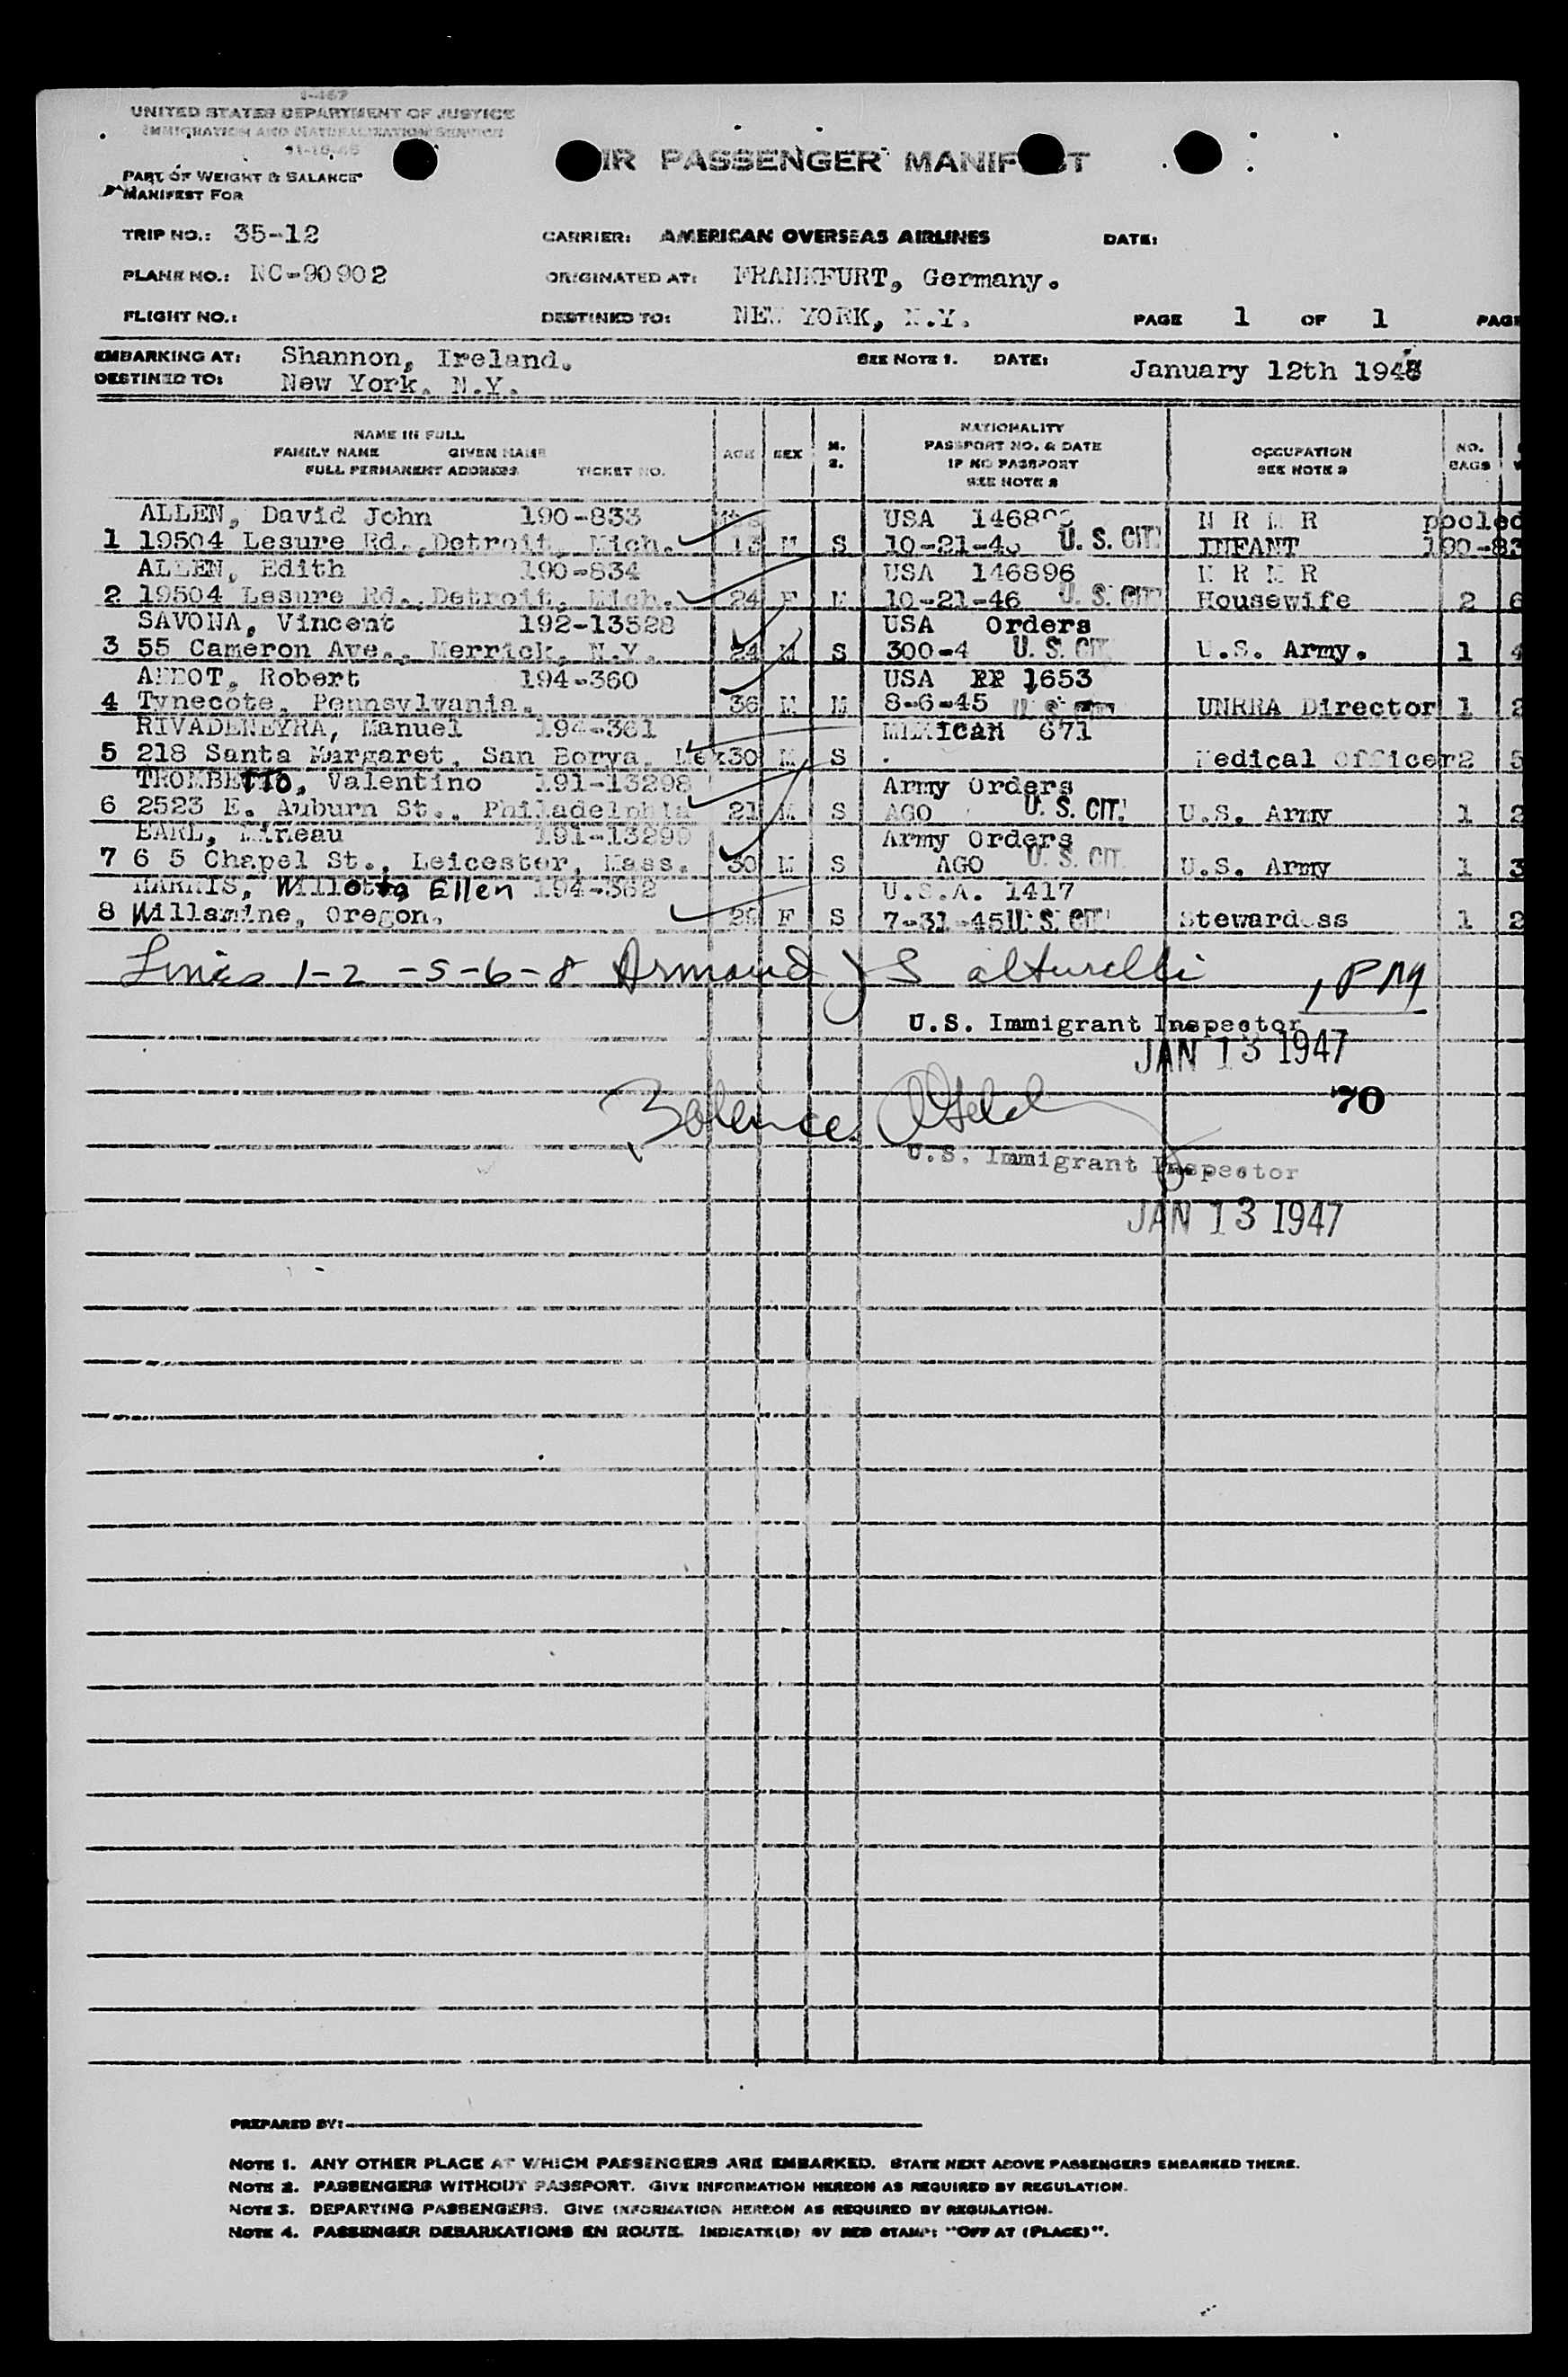 I-467
UNITED STATES DEPARTMENT OF JUSTICE
IMMIGRATION AND NATURALIZATION SERVICE
IR PASSENGER MANIF ST
PART OF WEIGHT & BALANCE
MANIFEST FOR
TRIP NO.: 35-12 CARRIER: AMERICAN OVERSEAS AIRLINES DATE:
PLANE NO.: NC-90902 ORIGINATED AT: FRANKFURT, Germany.
FLIGHT NO.: DESTINED TO: NEW YORK, N.Y. PAGE 1 OF 1 PAGE
EMBARKING AT: Shannon, Ireland. SEE NOTE 1. DATE: January 12th 194
DESTINED TO: New York. N.Y.
NAME IN FULL
FAMILY NAME GIVEN NAME
FULL PERMANENT ADDRESS TICKET NO. AGE SEX M. S. NATIONALITY PASSPORT NO. & DATE IF NO PASSPORT SEE NOTE 2 OCCUPATION SEE NOTE 3 NO. BAGS
ALLEN, David John 190-833 USA N R M R pooled
1 19504 Lesure Rd.,Detroit, Mich. 13 M S 10-21-46 U. S. CIT. INFANT 190-83
ALLEN, Edith 190-834 USA 146896 N R M R
2 19504 Lesure Rd.,Detroit, Mich. 24 F M 10-21-46 U. S. CIT. Housewife 2 6
SAVONA, Vincent 192-13528 USA Orders
3 55 Cameron Ave., Merrick, N.Y. 24 M S 300-4 U. S. CIT. U.S. Army. 1 4
Robert 194-360 USA PP 1653
4 Tynecote, Pennsylvania. 36 M M 8-6-45 U. S. CIT. UNRRA Director 1 2
RIVADENEYRA, Manuel 194-361 MEXICAN 671
5 218 Santa Margaret, San Borya, Mex 30 M S . Medical Officer 2 5
TROMBETTO, Valentino 191-13298 Army Orders
6 2523 E. Auburn St., Philadelphia 21 M S AGO U. S. CIT. U.S. Army 1 2
EARL, Mineau 191-13299 Army Orders
7 6 5 Chapel St., Leicester, Mass. 30 M S AGO U. S. CIT. U.S. Army 1 3
HARRIS, Willotta Ellen 194-362 U.S.A. 1417
8 Willamine, Oregon. 29 F S 7-31-45 U. S. CIT. Stewardess 1 2
Lines 1-2-5-6-8 Armand J Salturelli 1 PM
U.S. Immigrant Inspector
JAN 13 1947
70
Balance
U.S. Immigrant Inspector
JAN 13 1947
PREPARED BY:
NOTE 1. ANY OTHER PLACE AT WHICH PASSENGERS ARE EMBARKED. STATE NEXT ABOVE PASSENGERS EMBARKED THERE.
NOTE 2. PASSENGERS WITHOUT PASSPORT. GIVE INFORMATION HEREON AS REQUIRED BY REGULATION.
NOTE 3. DEPARTING PASSENGERS. GIVE INFORMATION HEREON AS REQUIRED BY REGULATION.
NOTE 4. PASSENGER DEBARKATIONS EN ROUTE. INDICATE(D) BY RED STAMP: "OFF AT (PLACE)".